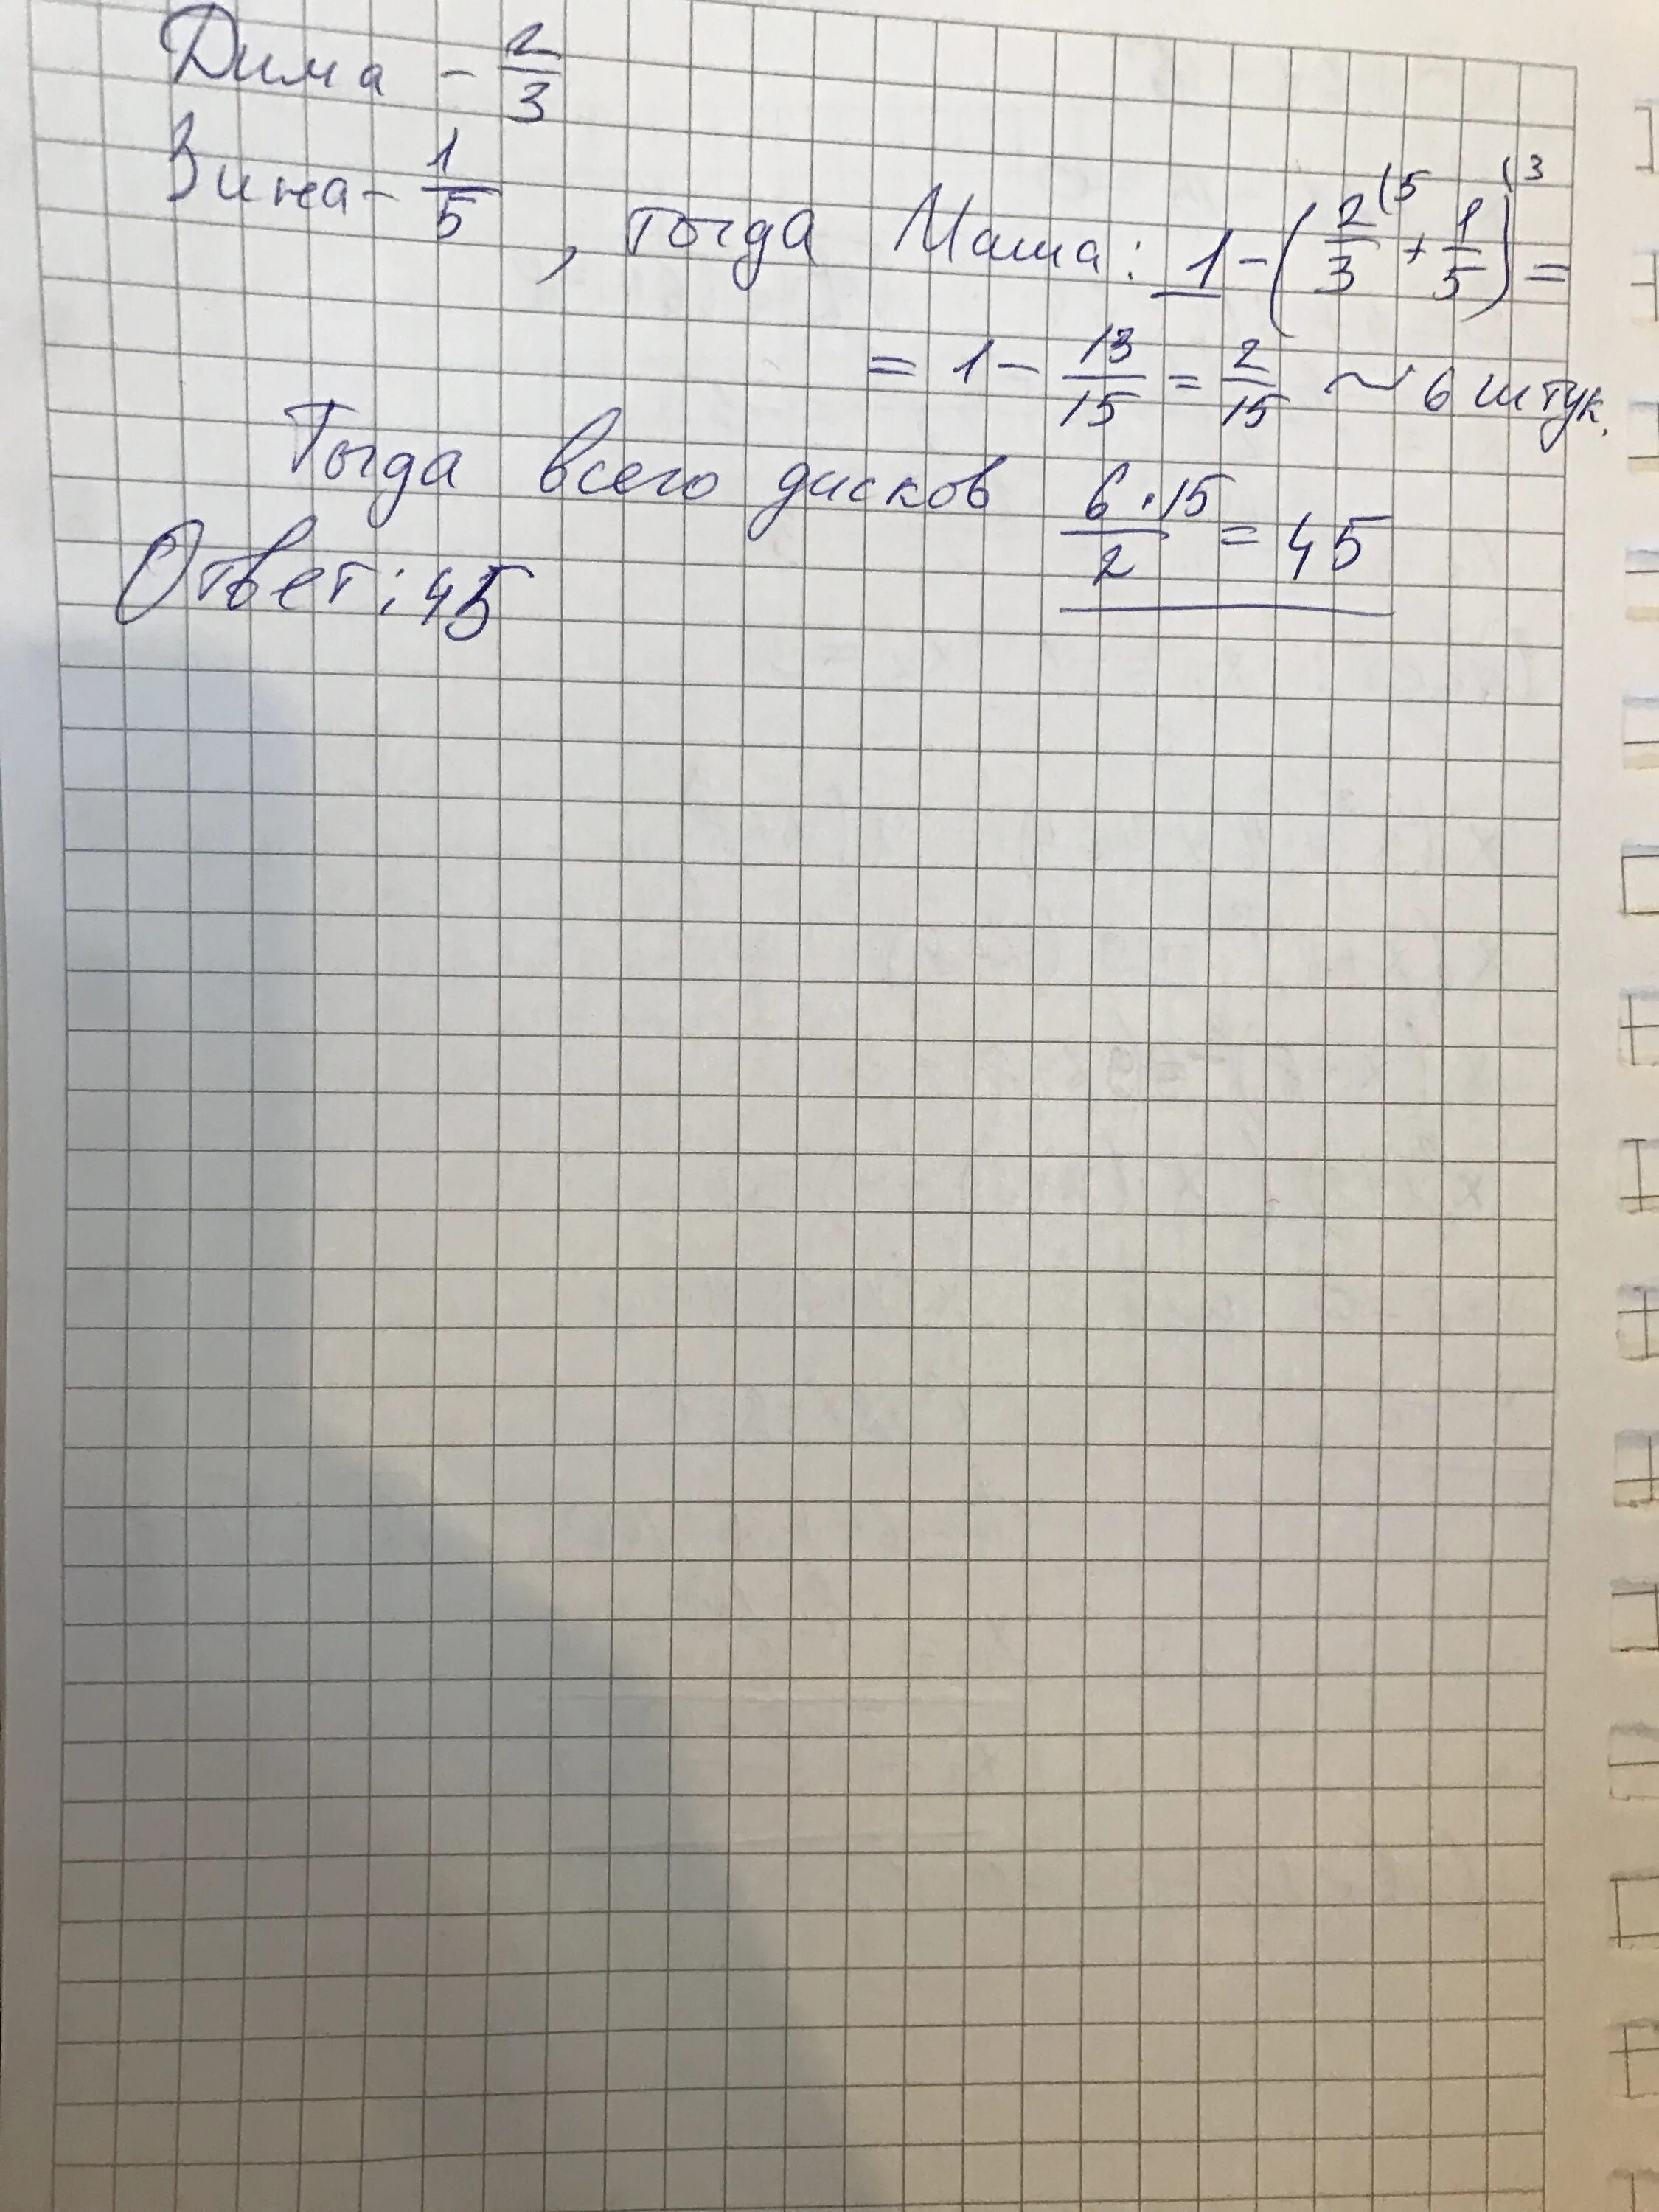 Дима - 2/3
Зина - 1/5, тогда Маша: 1 - (2/3 (5 + 1/5) (3 =
= 1 - 13/15 = 2/15 ~ 6 штук.
Тогда всего дисков 6·15/2 = 45
Ответ: 45